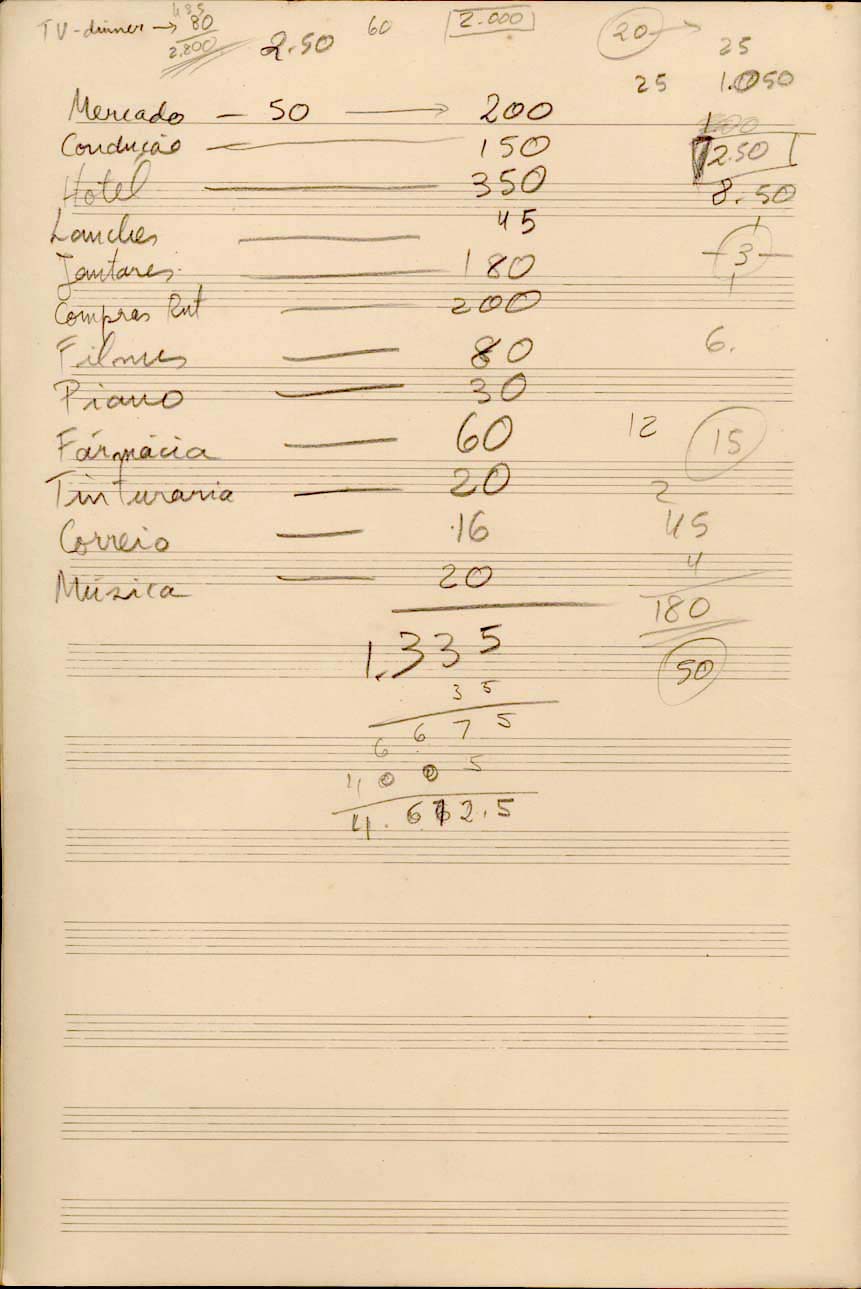 TV-dinner → 80
2.800
2.50
60
2.000
20 →
25
25 1.050
Mercado — 50 → 200
2.50
Condução — 150
8.50
Hotel — 350
Lanches — 45
3
Jantares — 180
Compras Rut — 200
Filmes — 80
6.
Piano — 30
Fármácia — 60
12 15
Tinturaria — 20
2
Correio — 16
45
4
Música — 20
180
1.335
50
35
6675
4005
4.672.5